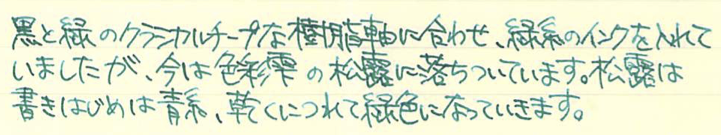 黒と緑のクラシカルチープな樹脂軸に合わせ、緑系のインクを入れて
いましたが、今は色彩雫の松露に落ちついています。松露は
書きはじめは青系、乾くにつれて緑色になっていきます。